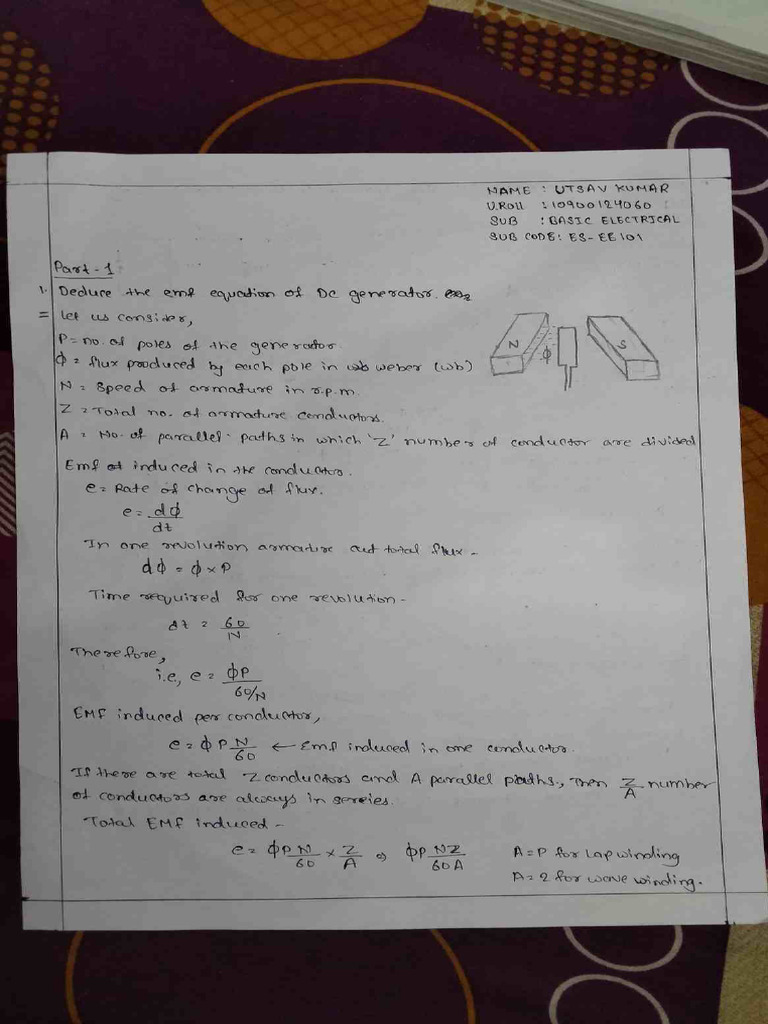 NAME : UTSAV KUMAR
U.ROLL : 10900124060
SUB : BASIC ELECTRICAL
SUB CODE: ES-EE101
Part-1
1. Deduce the emf equation of DC generator.
= let us consider,
P = no. of poles of the generator.
Φ = flux produced by each pole in weber (wb)
N = Speed of armature in r.p.m.
Z = Total no. of armature conductors.
A = No. of parallel paths in which 'Z' number of conductor are divided
N Φ S
Emf induced in the conductor.
e = Rate of change of flux.
e = dΦ/dt
In one revolution armature cut total flux -
dΦ = Φ × P
Time required for one revolution -
dt = 60/N
Therefore,
i.e, e = ΦP/60/N
EMF induced per conductor,
e = ΦP N/60 ← Emf induced in one conductor.
If there are total Z conductors and A parallel paths, Then Z/A number
of conductors are always in sereies.
Total EMF induced -
e = ΦP N/60 × Z/A ⇒ ΦP NZ/60A
A = P for Lap winding
A = 2 for wave winding.